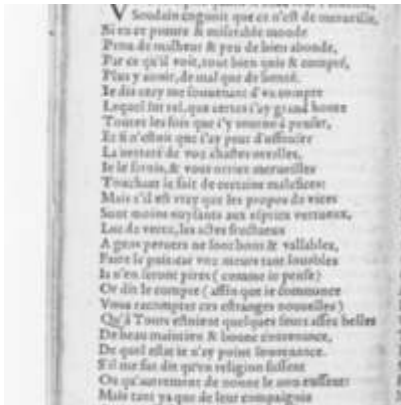 Soudain cognoit que ce n'est de merueille,
Si en ce poure & miserable monde
Prou de malheur & peu de bien abonde,
Par ce qu'il voit, tout bien quis & compté,
Plus y auoir, de mal que de bonté.
Ie dis cecy me souuenant d'vn compte
Lequel fut tel, que certes i'ay grand honte
Toutes les fois que i'y tourne à penser,
Et si n'estoit que i'ay peur d'offencer
La de voz chastes oreilles,
Ie le ferois, & vous orriez merueilles
Touchant le fait de certains malefices:
Mais s'il est vray que les propos de vices
Sont moins nuysants aux espritz vertueux,
Que de vertu, les actes fructueux
A gens peruers ne sont bons & vallables,
Faire le puis: car voz meurs tant louables
Ia n'en seront pires (comme ie pense)
Or dit le compte (affin que ie commence
Vous racompter ces estranges nouuelles)
Qu'à Tours estoient quelques seurs assés belles
De beau maintien & bonne contenance,
De quel estat ie n'ay point souuenance.
S'il me fut dit qu'en religion fussent
Ou qu'autrement de nonne le nom eussent:
Mais tant ya que de leur compaignie